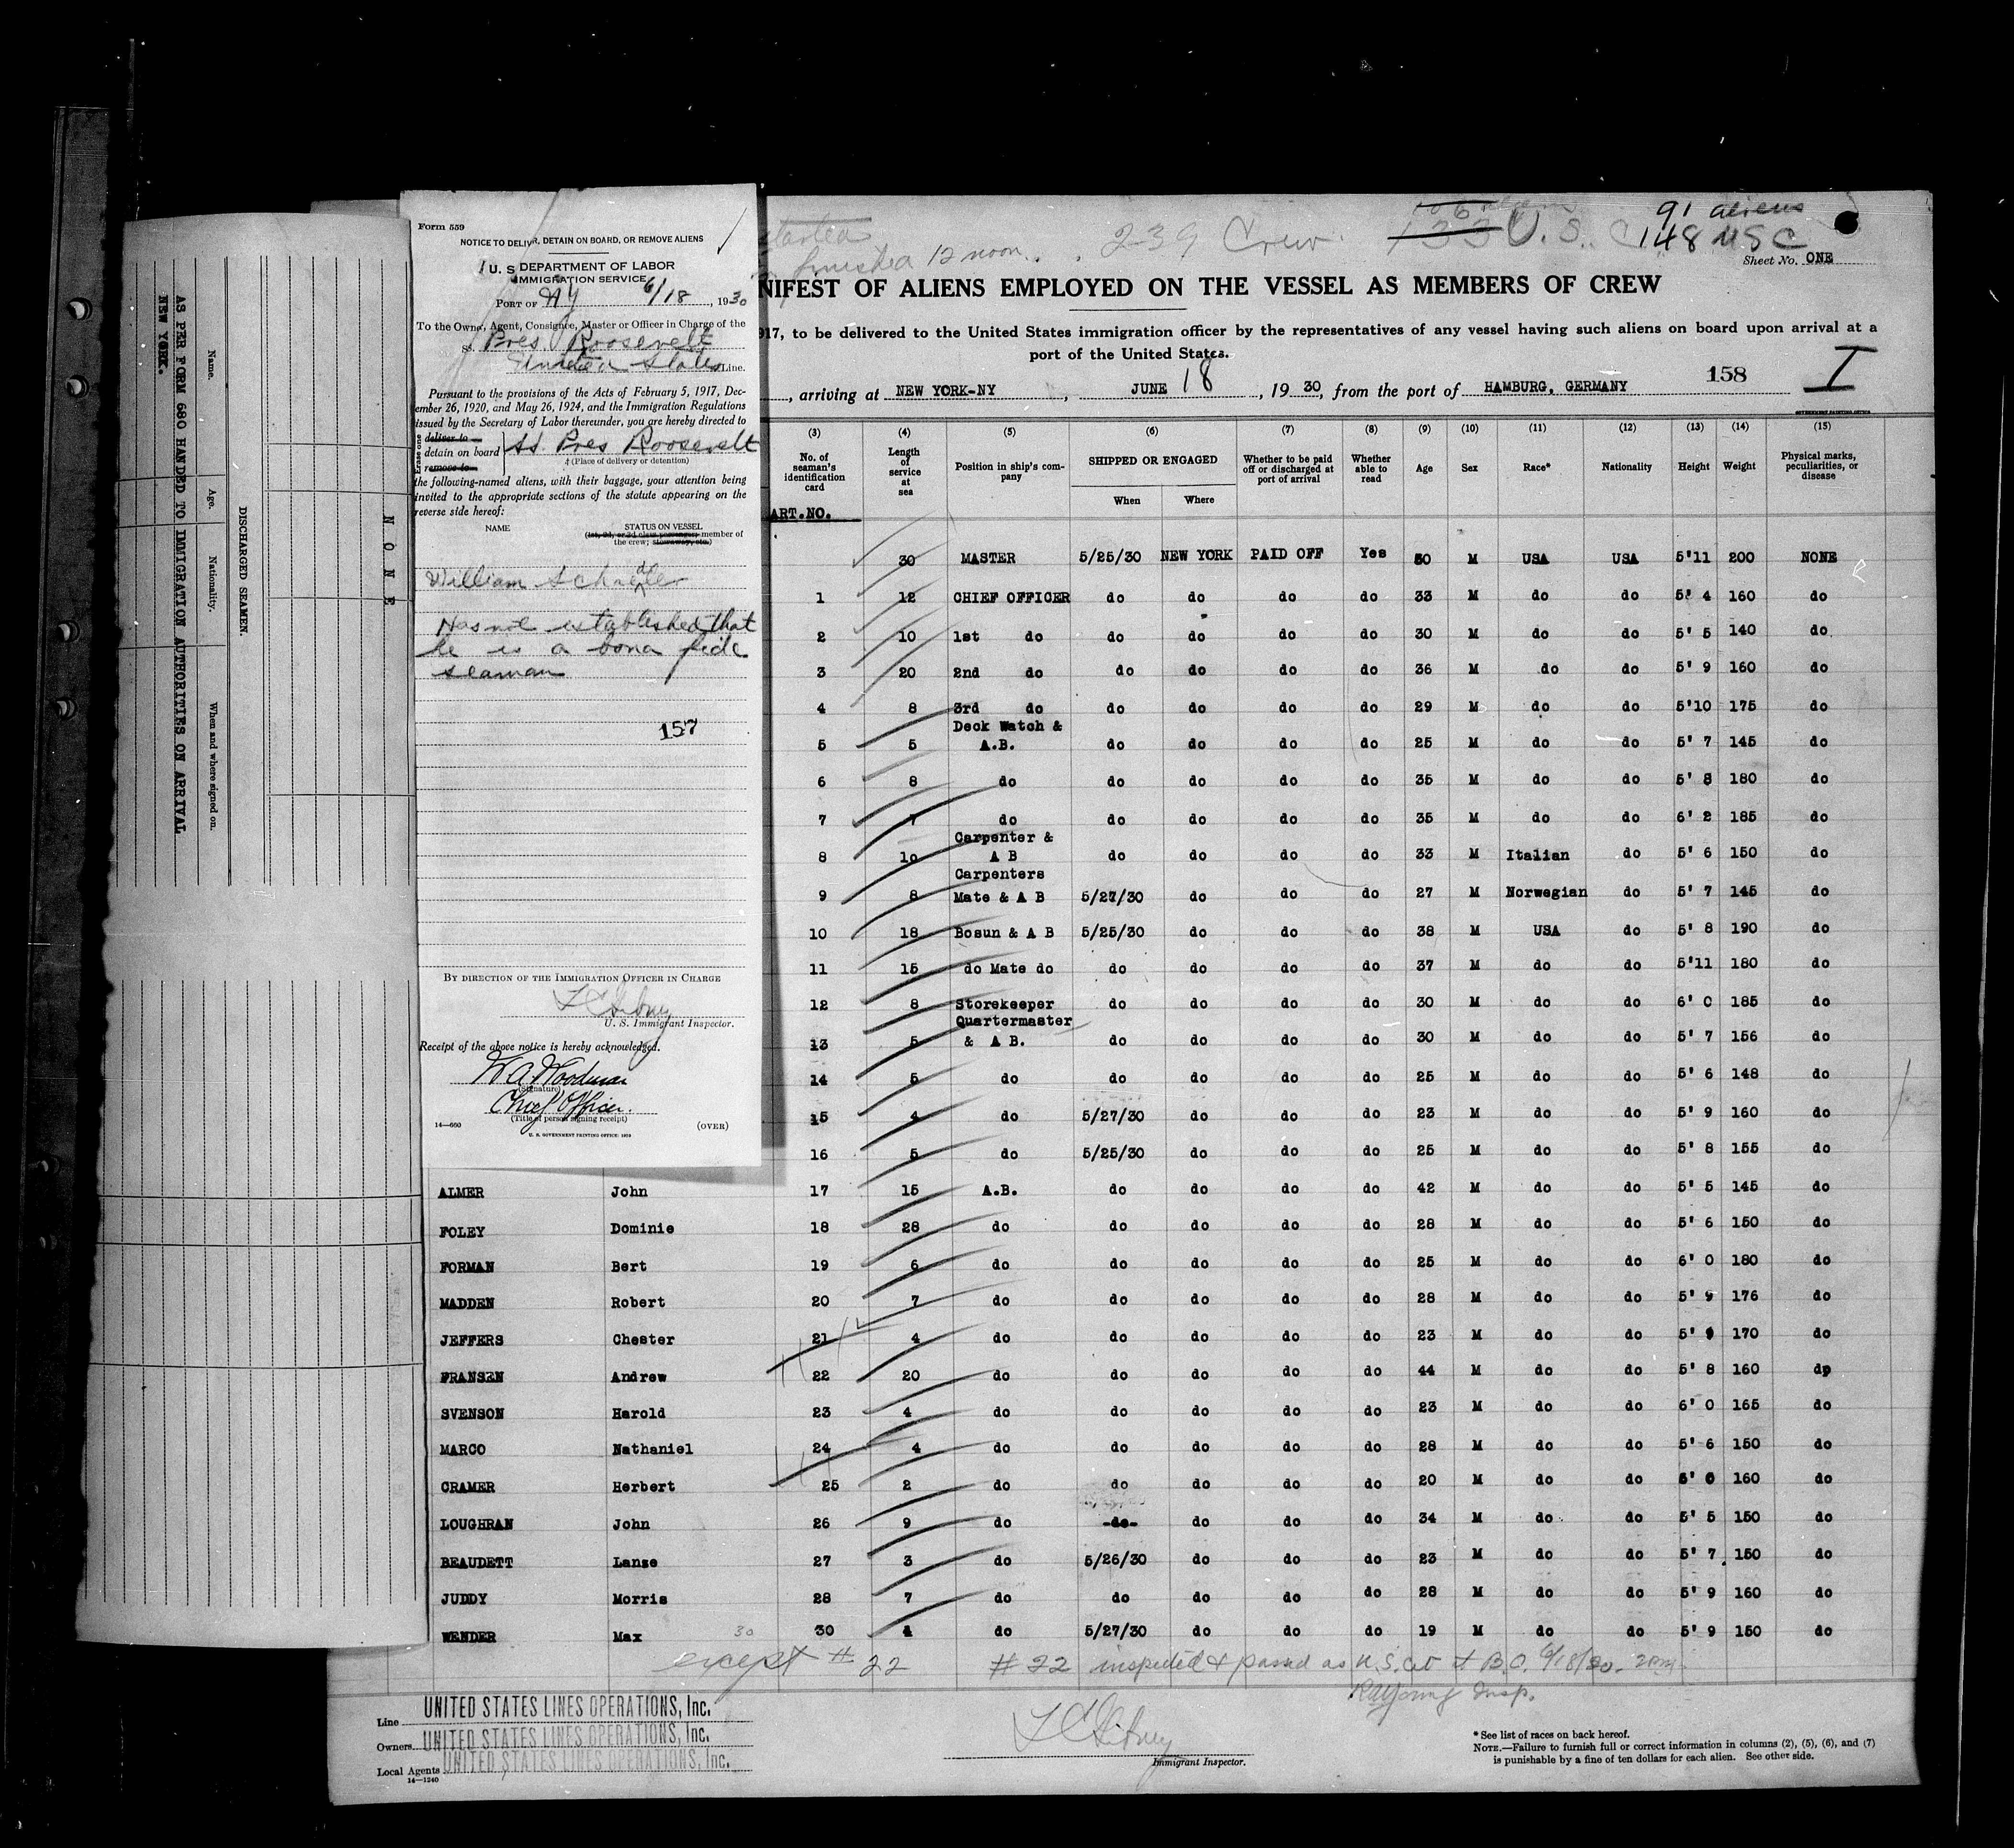 AS PER FORM 680 HANDED TO IMMIGRATION AUTHORITIES ON ARRIVAL
NEW YORK.
Name. Age. Nationality. When and where signed on.
DISCHARGED SEAMEN.
NONE
Form 559
NOTICE TO DELIVR, DETAIN ON BOARD, OR REMOVE ALIENS
U. S. DEPARTMENT OF LABOR
IMMIGRATION SERVICE
PORT OF NY 6/18, 1930
To the Owner, Agent, Consignee, Master or Officer in Charge of the
SS. Pres Roosevelt
United States Line.
Pursuant to the provisions of the Acts of February 5, 1917, Dec-
ember 26, 1920, and May 26, 1924, and the Immigration Regulations
issued by the Secretary of Labor thereunder, you are hereby directed to
Erase one
deliver to
detain on board SS. Pres Roosevelt
remove to
(Place of delivery or detention)
the following-named aliens, with their baggage, your attention being
invited to the appropriate sections of the statute appearing on the
reverse side hereof:
NAME STATUS ON VESSEL
(1st, 2d, or 3d class passenger, member of
the crew; stowaway, etc.)
William
Has not established that
he is a bona fide
seaman
157
BY DIRECTION OF THE IMMIGRATION OFFICER IN CHARGE
U. S. Immigrant Inspector.
Receipt of the above notice is hereby acknowledged.
W A Woodman
(Signature)
Chief Officer.
(Title of person signing receipt)
14—660 (OVER)
U. S. GOVERNMENT PRINTING OFFICE: 1929
started
finished 12 noon. 239 Crew. 133 U.S.C. 91 aliens
148 USC
Sheet No. ONE
NIFEST OF ALIENS EMPLOYED ON THE VESSEL AS MEMBERS OF CREW
917, to be delivered to the United States immigration officer by the representatives of any vessel having such aliens on board upon arrival at a
port of the United States.
, arriving at NEW YORK-NY, JUNE 18, 1930, from the port of HAMBURG, GERMANY 158 I
GOVERNMENT PRINTING OFFICE
(3) (4) (5) (6) (7) (8) (9) (10) (11) (12) (13) (14) (15)
No. of seaman's identification card Length of service at sea Position in ship's company SHIPPED OR ENGAGED When Where Whether to be paid off or discharged at port of arrival Whether able to read Age Sex Race* Nationality Height Weight Physical marks, peculiarities, or disease
ART.NO.
30 MASTER 5/25/30 NEW YORK PAID OFF Yes 50 M USA USA 5'11 200 NONE
1 12 CHIEF OFFICER do do do do 33 M do do 5' 4 160 do
2 10 1st do do do do do 30 M do do 5' 5 140 do
3 20 2nd do do do do do 36 M do do 5' 9 160 do
4 8 3rd do do do do do 29 M do do 5'10 175 do
5 5 Deck Watch & A.B. do do do do 25 M do do 5' 7 145 do
6 8 do do do do do 35 M do do 5' 8 180 do
7 7 do do do do do 35 M do do 6' 2 185 do
8 10 Carpenter & A B do do do do 33 M Italian do 5' 6 150 do
9 8 Carpenters Mate & A B 5/27/30 do do do 27 M Norwegian do 5' 7 145 do
10 18 Bosun & A B 5/25/30 do do do 38 M USA do 5' 8 190 do
11 15 do Mate do do do do do 37 M do do 5'11 180 do
12 8 Storekeeper do do do do 30 M do do 6' 0 185 do
13 5 Quartermaster & A B. do do do do 30 M do do 5' 7 156 do
14 5 do do do do do 25 M do do 5' 6 148 do
15 4 do 5/27/30 do do do 23 M do do 5' 9 160 do
16 5 do 5/25/30 do do do 25 M do do 5' 8 155 do
ALMER John 17 15 A.B. do do do do 42 M do do 5' 5 145 do
FOLEY Dominie 18 28 do do do do do 28 M do do 5' 6 150 do
FORMAN Bert 19 6 do do do do do 25 M do do 6' 0 180 do
MADDEN Robert 20 7 do do do do do 28 M do do 5' 9 176 do
JEFFERS Chester 21 4 do do do do do 23 M do do 5' 170 do
FRANSEN Andrew 22 20 do do do do do 44 M do do 5' 8 160 do
SVENSON Harold 23 4 do do do do do 23 M do do 6' 0 165 do
MARCO Nathaniel 24 4 do do do do do 28 M do do 5' 6 150 do
CRAMER Herbert 25 2 do do do do do 20 M do do 160 do
LOUGHRAN John 26 9 do -do- do do do 34 M do do 5' 5 150 do
BEAUDETT Lanse 27 3 do 5/26/30 do do do 23 M do do 5' 7 150 do
JUDDY Morris 28 7 do do do do do 28 M do do 5' 9 160 do
WENDER Max 30 30 4 do 5/27/30 do do do 19 M do do 5' 9 150 do
except # 22 # 22 inspected & passed as U.S. Cit at B.O. 6/18/30. 2 pm
RW Young Insp.
Line UNITED STATES LINES OPERATIONS, Inc.
Owners UNITED STATES LINES OPERATIONS, Inc.
Local Agents UNITED STATES LINES OPERATIONS, Inc.
14—1240
Immigrant Inspector.
* See list of races on back hereof.
NOTE.—Failure to furnish full or correct information in columns (2), (5), (6), and (7)
is punishable by a fine of ten dollars for each alien. See other side.